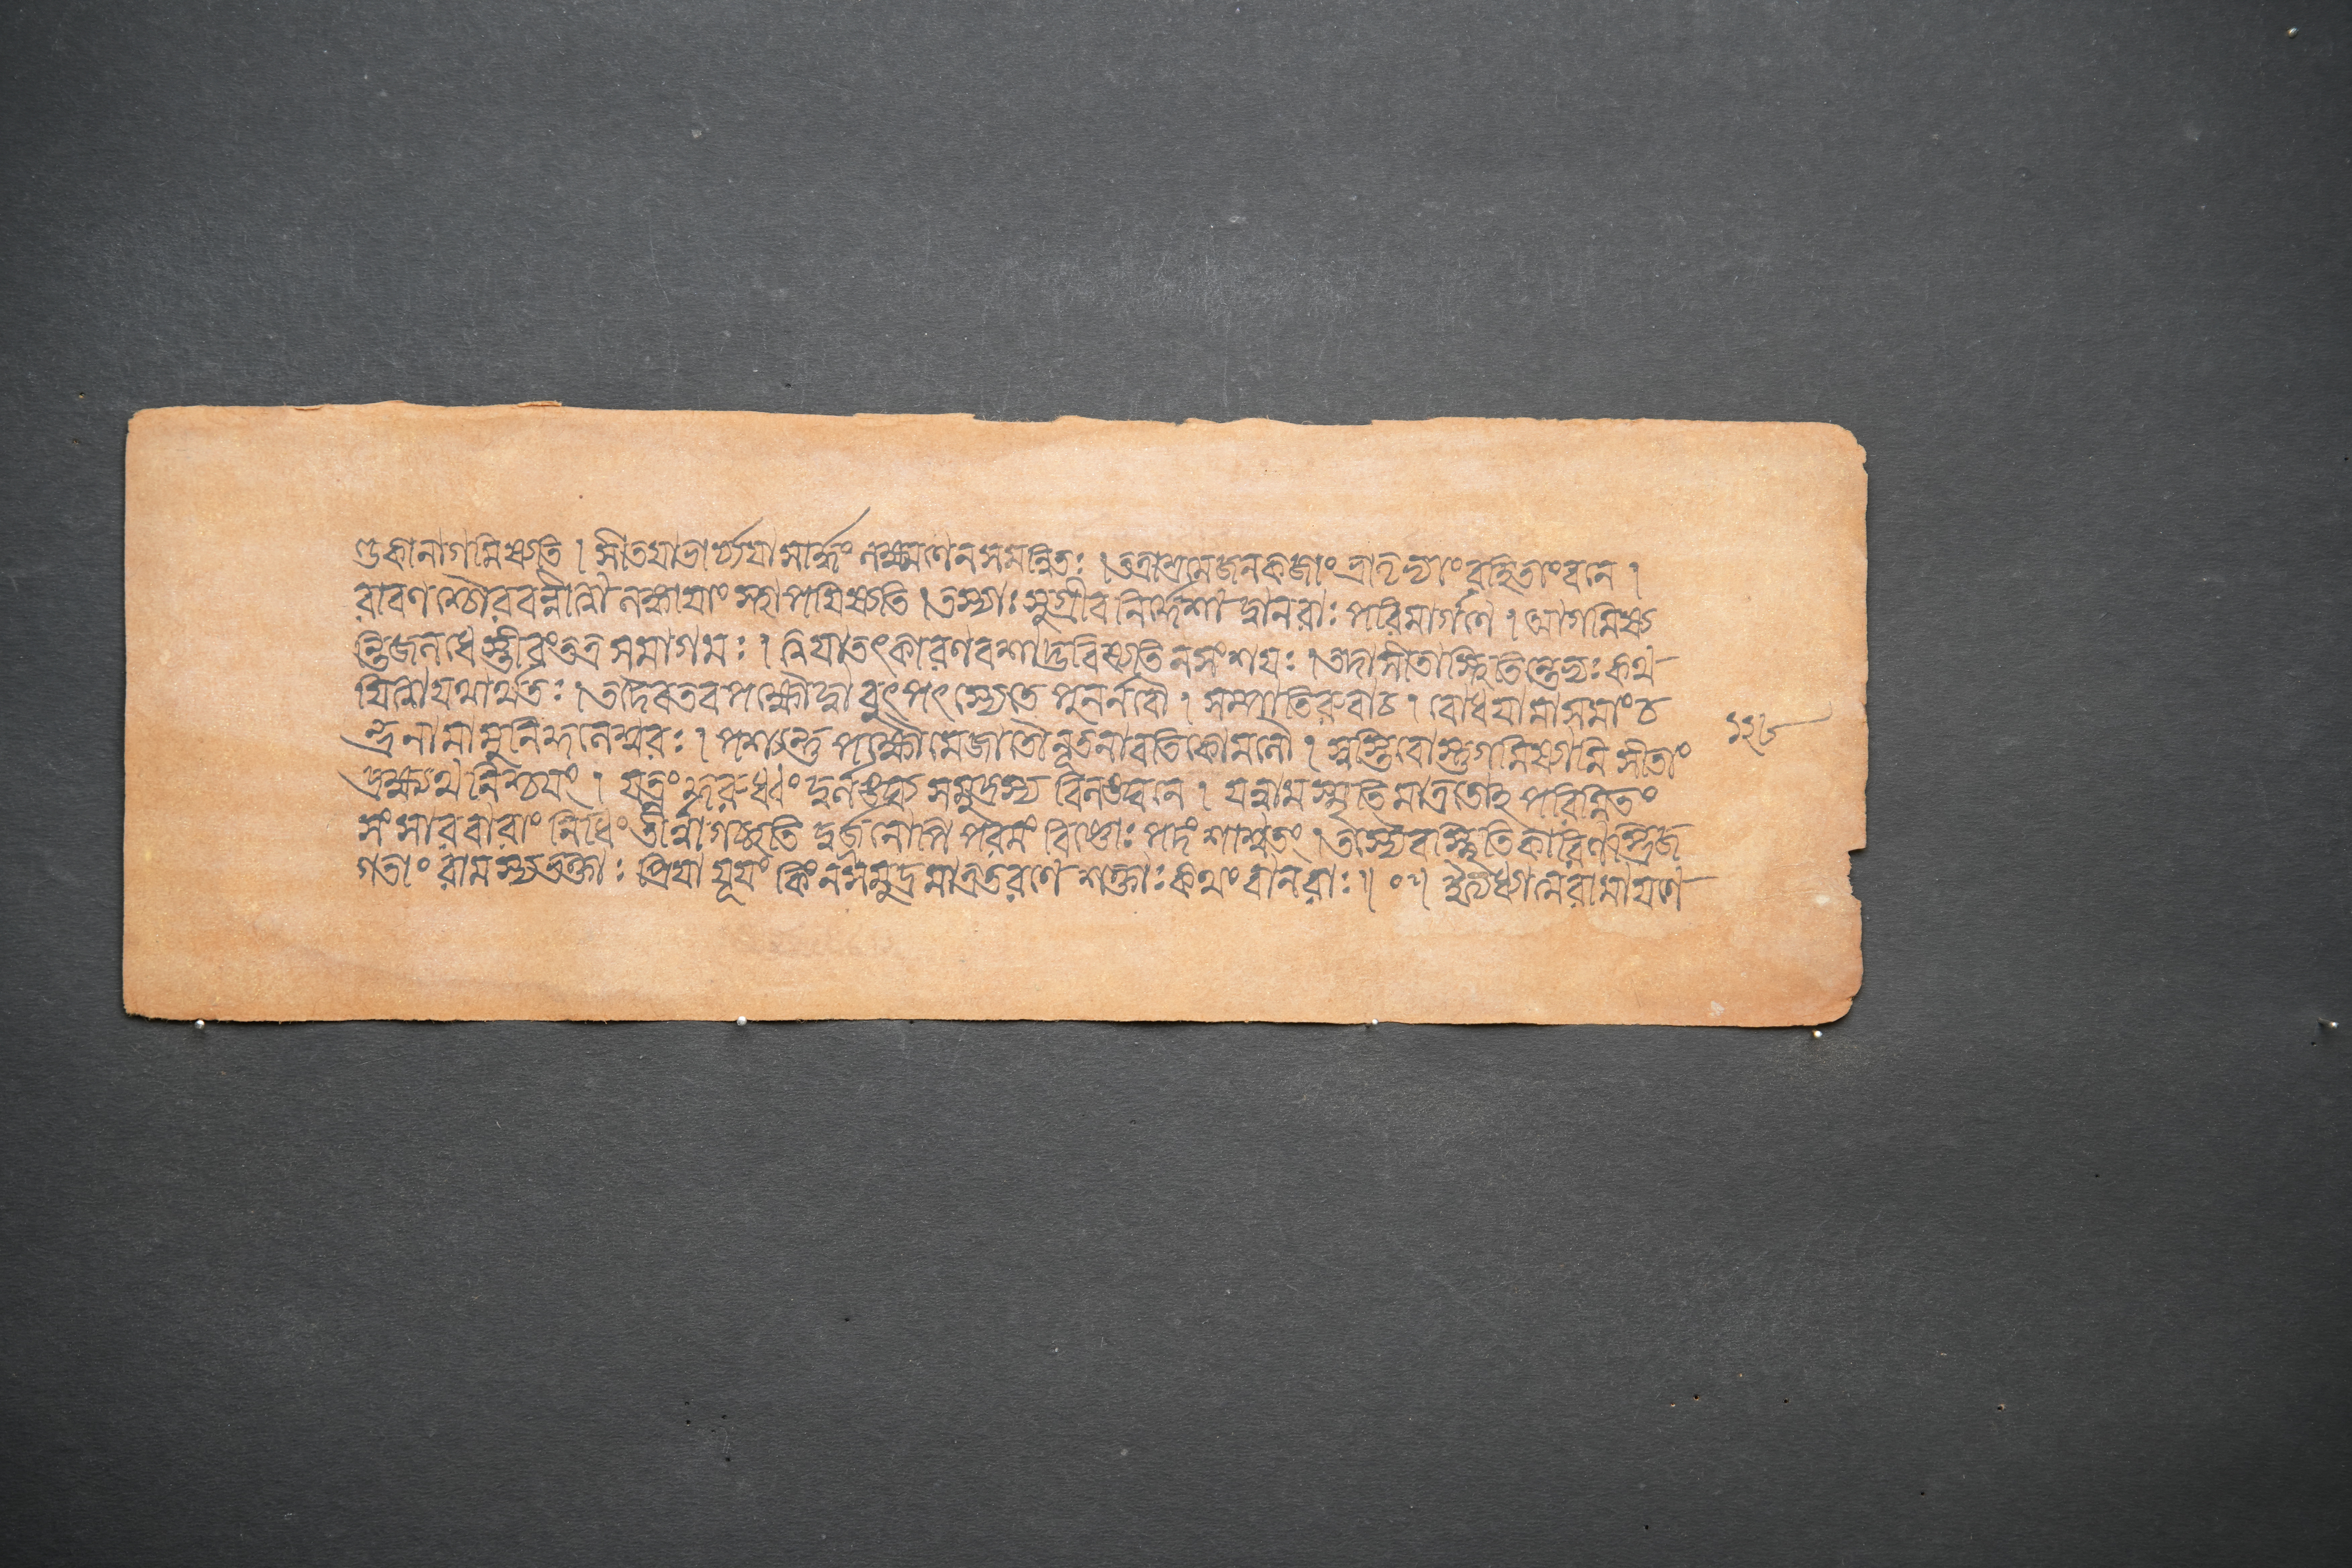 ণ্ডকানাগমিষ্যতি । সীতযাভার্য্যযা সার্দ্ধং লক্ষ্মণেন সমন্বিতঃ । তত্রাশ্রমে জনকজাং ভ্রাতৃভ্যাং রহিতাং বনে ।
রাবণশ্চৌরবন্নীত্বা লঙ্কাযাং স্থাপযিষ্যতি । তস্যাঃ সুগ্রীব নির্দ্দেশা দ্বানরাঃ পরিমার্গণে । আগমিষ্য
ন্তি জলধে স্তীরং তত্র সমাগমঃ । ত্বযা তৎ কারণবশাদ্ভবিষ্যতি ন সংশযঃ । তদা সীতাস্থিতিন্তেভ্যঃ কথ
যিত্বা যথার্থতঃ । তদৈব তব পক্ষৌ দ্বা বুৎপৎস্যেতে পুনর্নবৌ । সম্পাতিরুবাচ । বোধযামাস মাং চ
ন্দ্রনামা মুনিকুলেশ্বরঃ । পশ্যন্তু পক্ষৌ মে জাতৌ নূতনাবতিকোমলৌ । স্বস্তি বোস্তু গমিষ্যামি সীতাং
দ্রক্ষ্যথ নিশ্চযং । যত্নং কুরুধ্বং দুর্লঙ্ঘ্য সমুদ্রস্য বিলঙ্ঘনে । যন্নাম স্মৃতিমাত্রতোঽ পরিমিতং
সংসারবারাং নিধিং তীর্ত্বা গচ্ছতি দুর্জনোপি পরমং বিষ্ণোঃ পদং শাশ্বতং । তস্যৈব স্থিতিকারিণস্ত্রিজ
গতাং রামস্য ভক্তাঃ প্রিযা যূযং কিং ন সমুদ্রমাত্রতরণে শক্তাঃ কথং বানরাঃ ॥ ০ ॥ ইত্যধ্যাত্মরামাযণে
১২৬